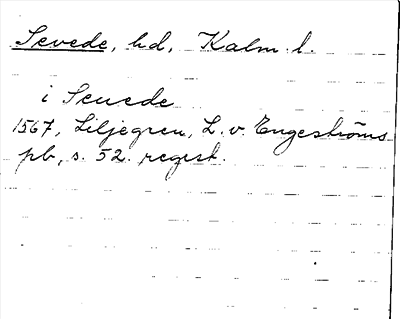 Sevede, hd, Kalm. l.
i Seuede
1567, Liljegren, L. v. Engeströms
pb, s. 52. regest.